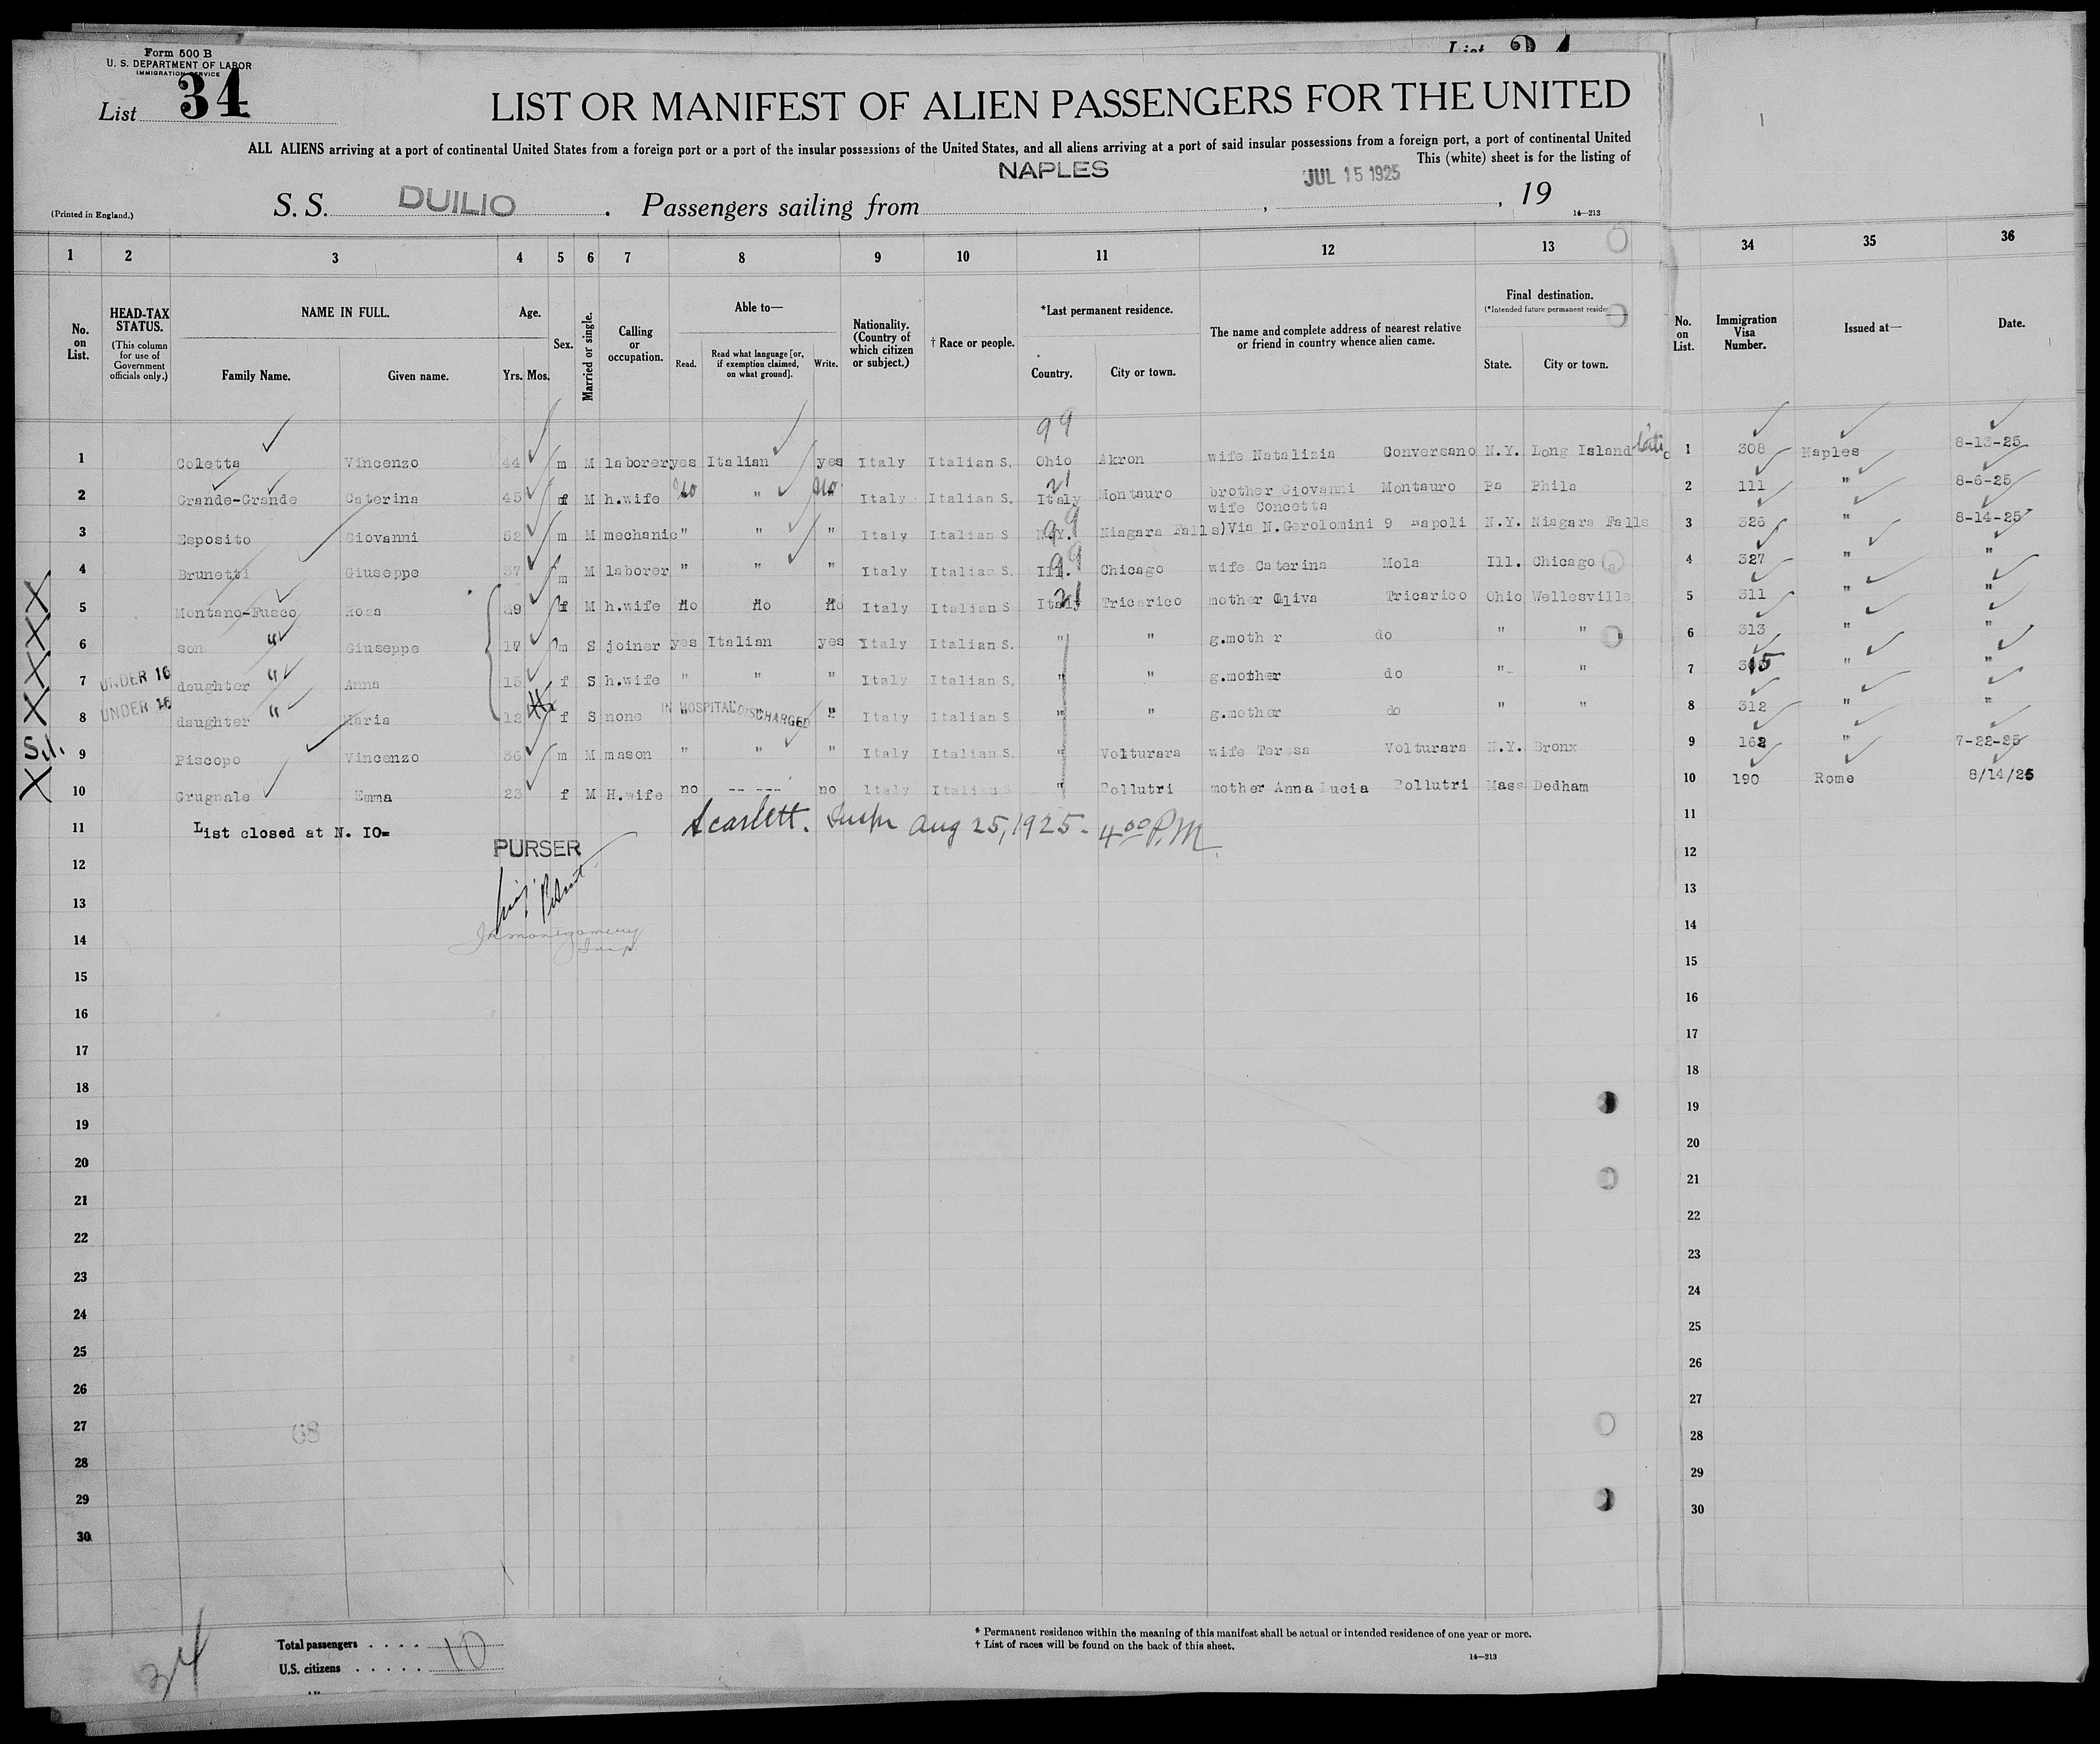 Form 500 B
U. S. DEPARTMENT OF LABOR
IMMIGRATION SERVICE
List 34
LIST OR MANIFEST OF ALIEN PASSENGERS FOR THE UNITED
ALL ALIENS arriving at a port of continental United States from a foreign port or a port of the insular possessions of the United States, and all aliens arriving at a port of said insular possessions from a foreign port, a port of continental United
This (white) sheet is for the listing of
(Printed in England.) S. S. DUILIO. Passengers sailing from NAPLES, JUL 15 1925, 19
14—213
1 2 3 4 5 6 7 8 9 10 11 12 13 34 35 36
No. on List.
HEAD-TAX STATUS. (This column for use of Government officials only.)
NAME IN FULL. Family Name. Given name.
Age. Yrs. Mos.
Sex.
Married or single.
Calling or occupation.
Able to— Read. Read what language [or, if exemption claimed, on what ground]. Write.
Nationality. (Country of which citizen or subject.)
† Race or people.
*Last permanent residence. Country. City or town.
The name and complete address of nearest relative or friend in country whence alien came.
Final destination. (*Intended future permanent State. City or town.
No. on List.
Immigration Visa Number.
Issued at—
Date.
99
1 Coletta Vincenzo 44 m M laborer yes Italian yes Italy Italian S. Ohio Akron wife Natalizia Conversano N.Y. Long Island 1 308 Naples 8-13-25
21
2 Grande-Grande Caterina 45 f M h.wife no " no Italy Italian S. Italy Montauro brother Giovanni Montauro Pa Phila 2 111 " 8-6-25
wife Concetta
99
3 Esposito Giovanni 52 m M mechanic " " " Italy Italian S N.Y. Niagara Falls) Via N.Gerolomini 9 Napoli N.Y. Niagara Falls 3 326 " 8-14-25
99
4 Brunetti Giuseppe 37 m M laborer " " " Italy Italian S. Ill. Chicago wife Caterina Mola Ill. Chicago 4 327 " "
21
X 5 Montano-Fusco Rosa f M h.wife No No No Italy Italian S Italy Tricarico mother Oliva Tricarico Ohio Wellesville 5 311 " "
X 6 son " Giuseppe 17 m S joiner yes Italian yes Italy Italian S. " " g.mother do " " 6 313 " "
X 7 UNDER 16 daughter " Anna 15 f S h.wife " " " Italy Italian S. " " g.mother do " " 7 " "
X 8 UNDER 16 daughter " Maria 12 f S none " " " Italy Italian S " " g.mother do " " 8 312 " "
IN HOSPITAL DISCHARGED
S.I. 9 Piscopo Vincenzo 36 m M mason " " " Italy Italian S. " Volturara wife Teresa Volturara N.Y. Bronx 9 162 " 7-22-25
X 10 Grugnale Emma 23 f M H.wife no -- --- no Italy Italian S " Pollutri mother Anna Lucia Pollutri Mass Dedham 10 190 Rome 8/14/25
11 List closed at N. 10= Scarlett. Inspr Aug 25, 1925 - 4 00 P.M. 11
PURSER
12 12
13 13
14 JHMontgomery 14
Insp.
15 15
16 16
17 17
18 18
19 19
20 20
21 21
22 22
23 23
24 24
25 25
26 26
27 27
68
28 28
29 29
30 30
34
Total passengers . . . . 10
U.S. citizens . . . . .
* Permanent residence within the meaning of this manifest shall be actual or intended residence of one year or more.
† List of races will be found on the back of this sheet.
14—213